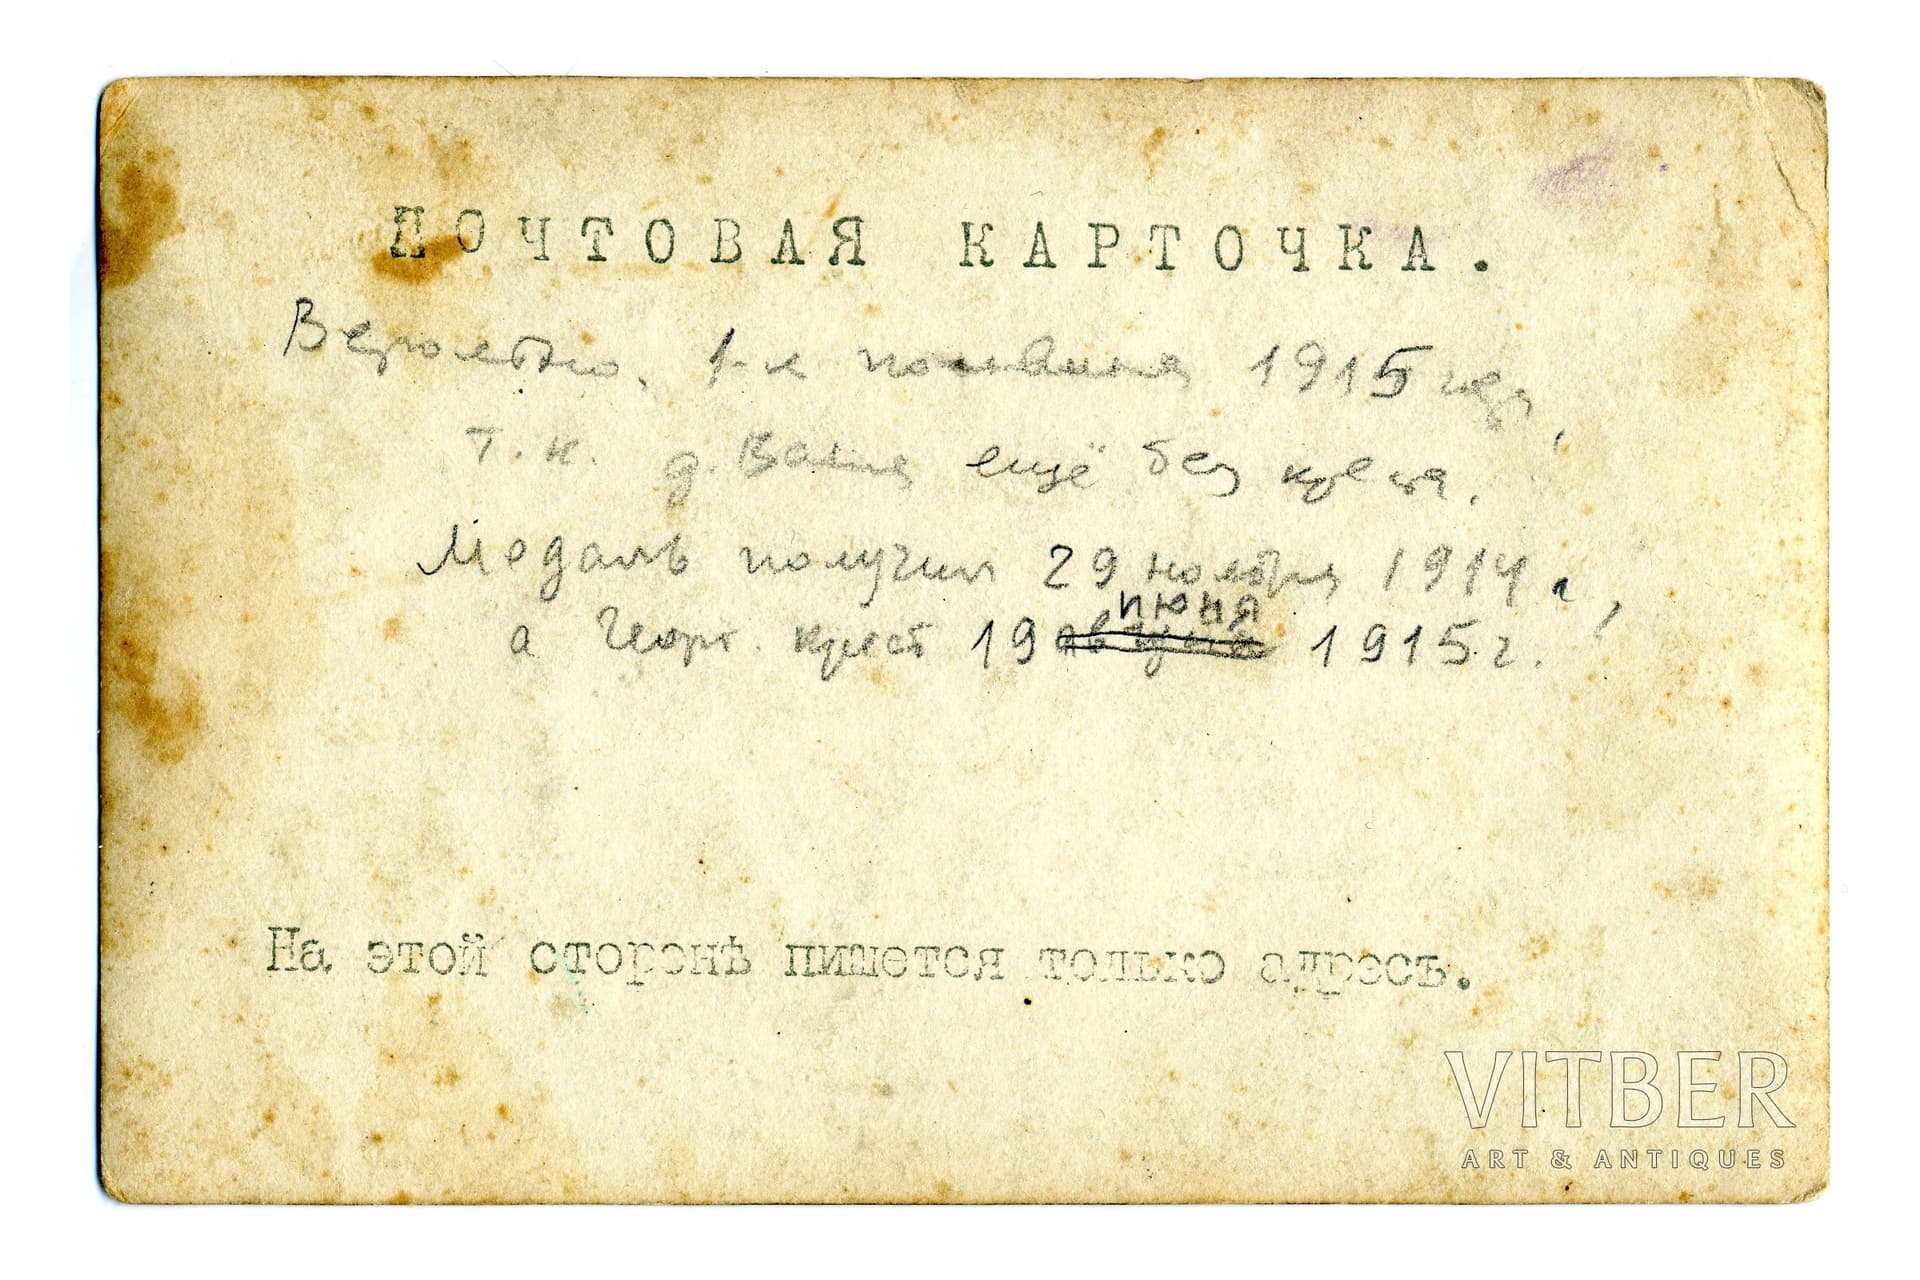 ПОЧТОВАЯ КАРТОЧКА.
Вероятно, 1-я половина 1915 года,
т.к. д. Ваня ещё без креста.
Медаль получил 29 ноября 1914 г.,
июня
а Георг. крест 19 августа 1915 г.
На этой сторонѣ пишется только адресъ.
VITBER
ART & ANTIQUES